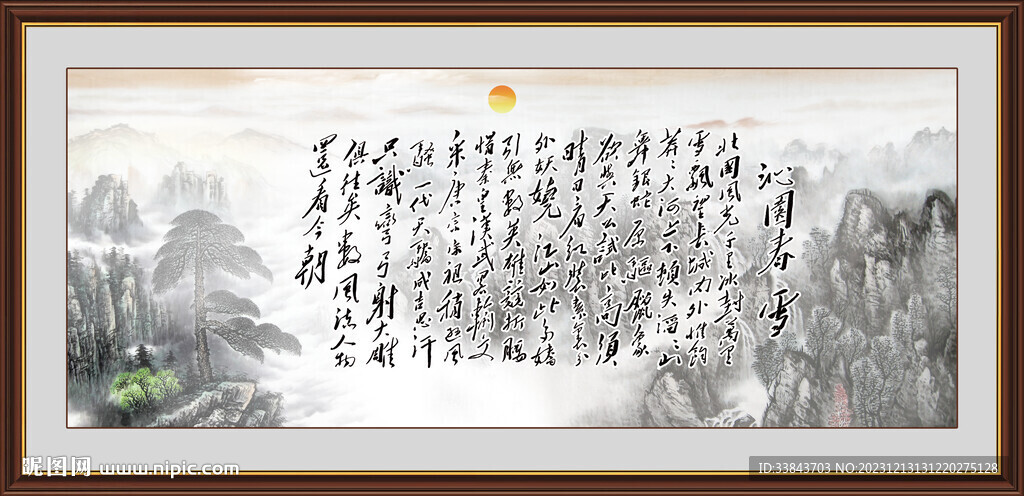 沁園春 雪
北國風光千里冰封萬里
雪飄望長城內外惟餘
莽莽大河上下頓失滔滔山
舞銀蛇原驅臘象
欲與天公試比高須
晴日看紅裝素裹分
外妖嬈江山如此多嬌
引無數英雄競折腰
惜秦皇漢武略輸文
采唐宗宋祖稍遜風
騷一代天驕成吉思汗
只識彎弓射大雕
俱往矣數風流人物
還看今朝
昵图网 www.nipic.com
ID:33843703 NO:20231213131220275128